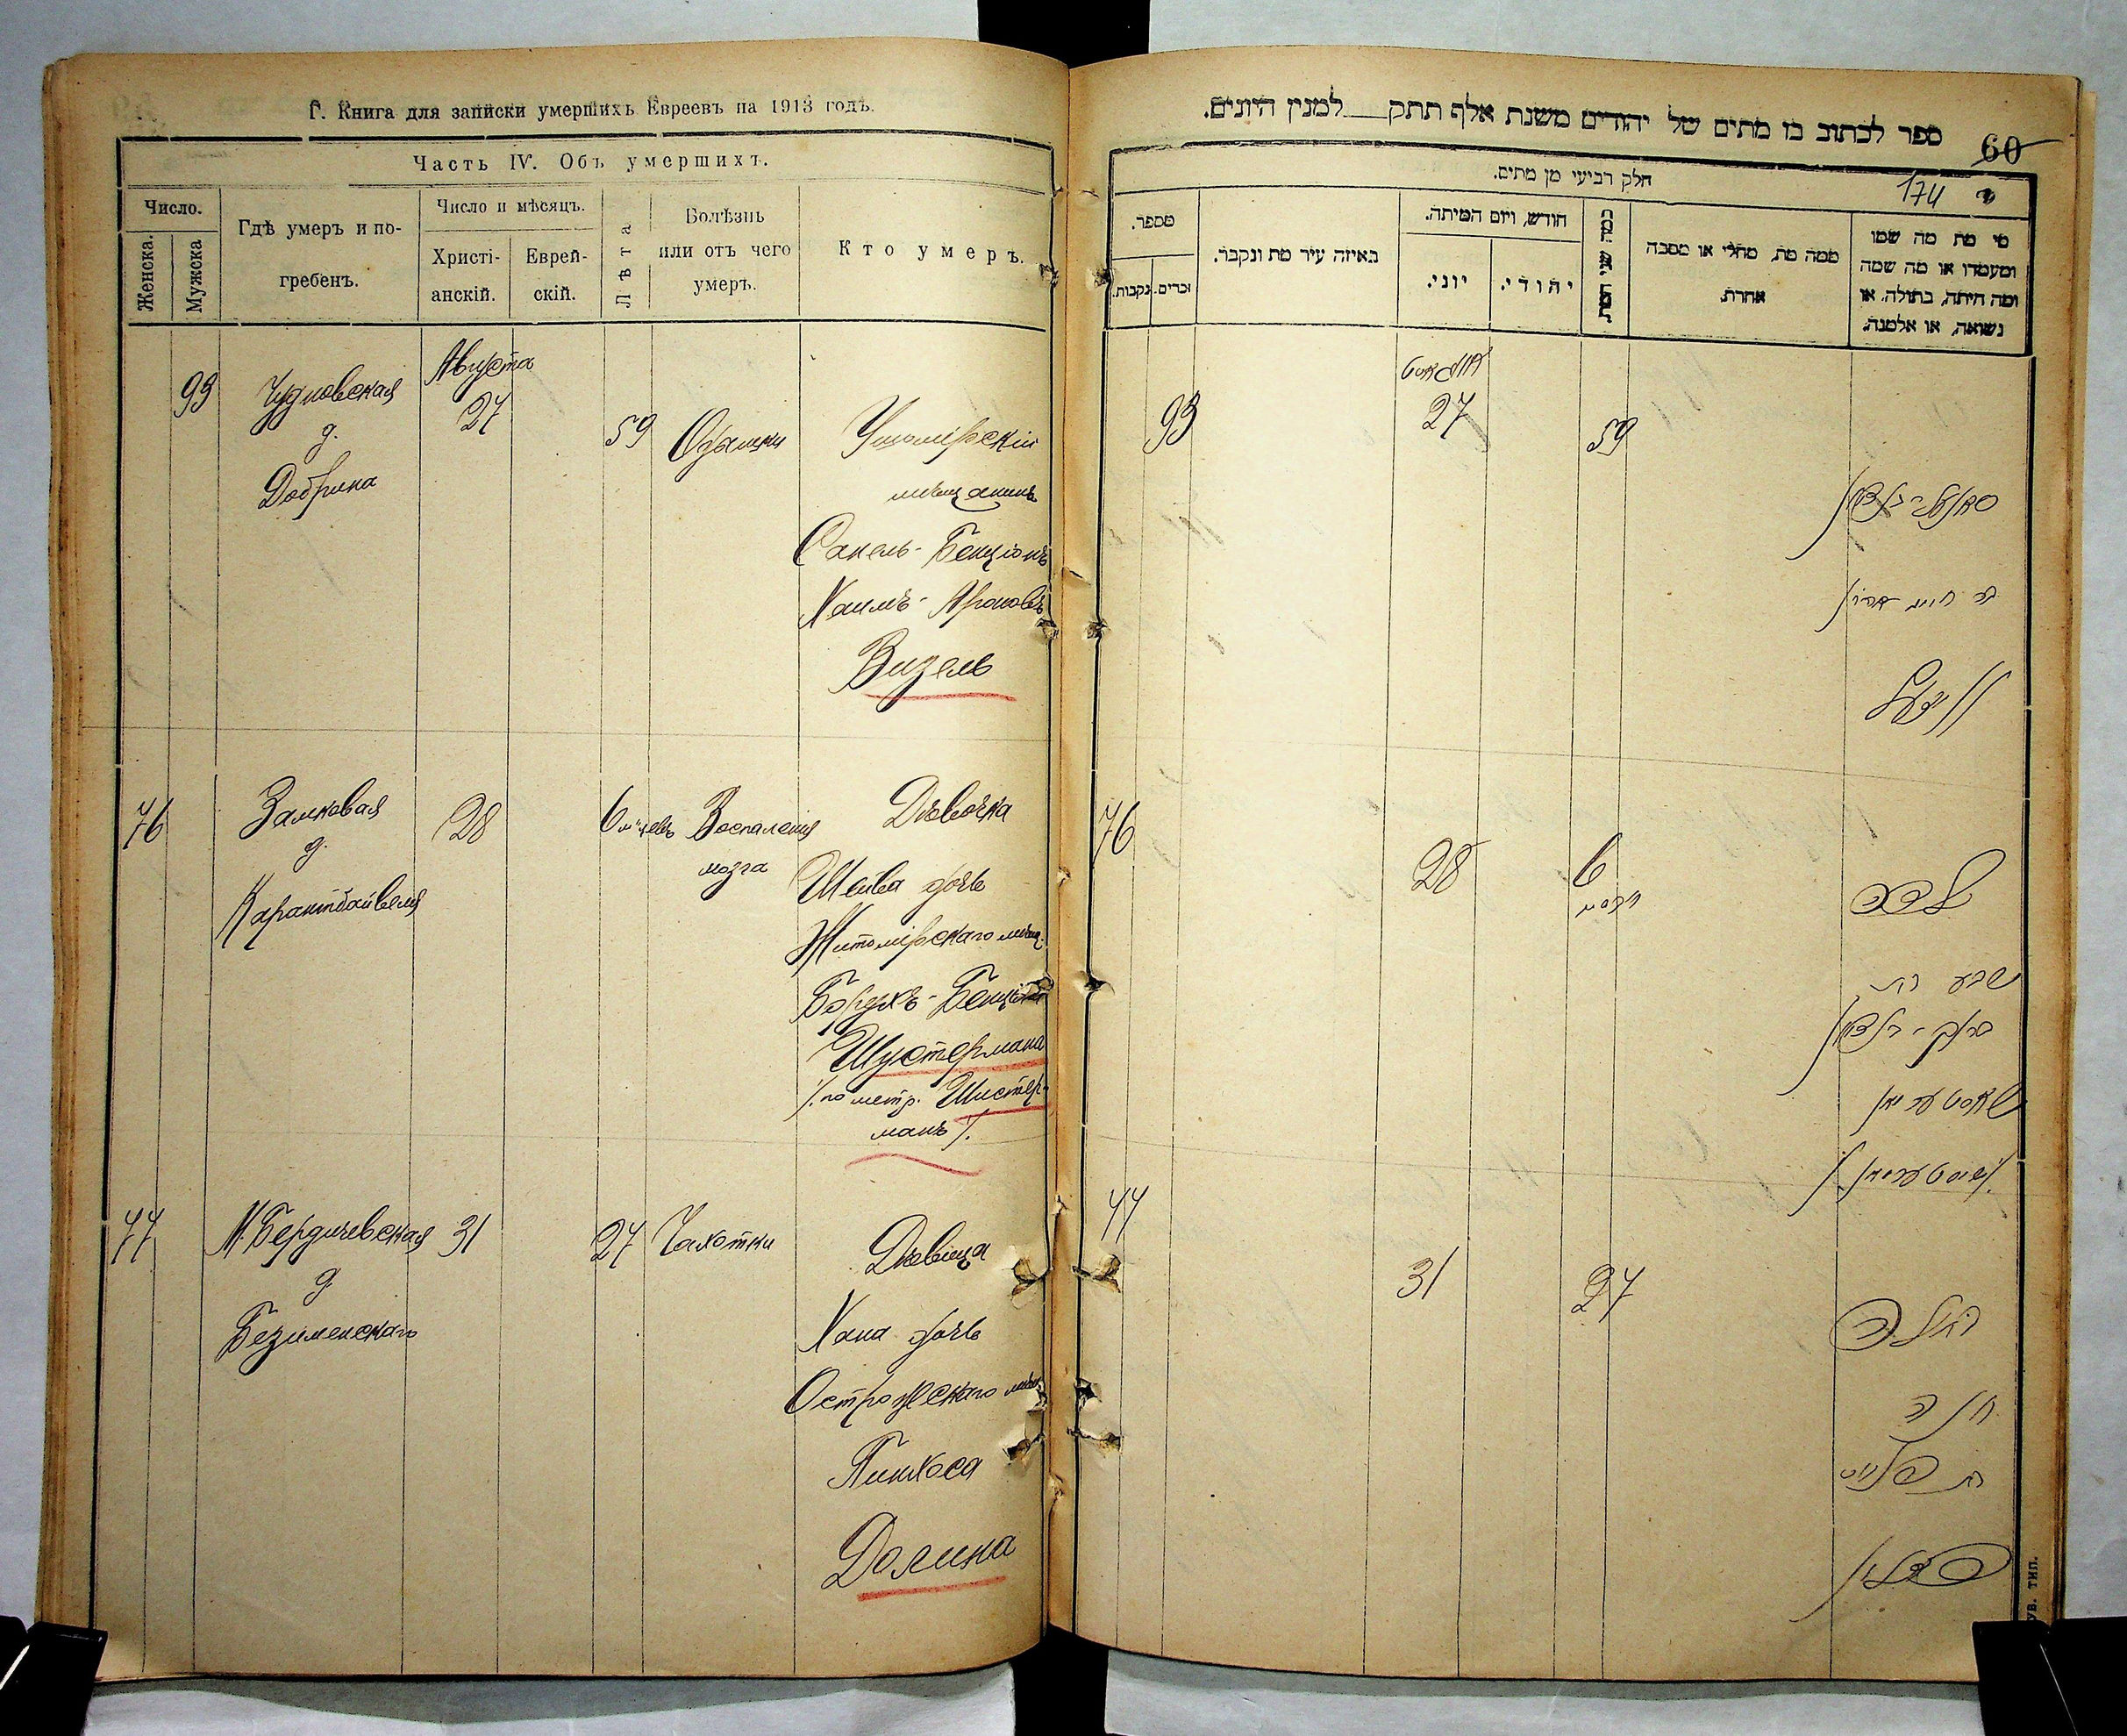 Г. Книга для записки умершихъ Евреевъ на 1913 годъ.
Часть IV. Объ умершихъ.
Число.
Женска.
Мужска
Гдѣ умеръ и по-
гребенъ.
Число и мѣсяцъ.
Христі-
анскій.
Еврей-
скій.
Лѣта
Болѣзнь
или отъ чего
умеръ.
Кто умеръ.
93
Чудновская
д.
Добрина
Августа
27
59
Одышки
Ушомірскій
мѣщанинъ
Санель-Бенціонъ
Хаимъ-Ароновъ
Визель
76
Замковая
д.
28
6
Воспаленія
мозга
Дѣвочка
Шейва дочь
Житомірскаго мѣщ.
Борухъ-Бенціона
Шустермана
/. по метр. Шистер-
манъ /.
77
М. Бердичевская
д
Безименскаго
31
27
Чахотки
Дѣвица
Хана дочь
Острожскаго мѣщ
Пинхоса
Долина
ספר לכתוב בו מתים של יהודים משנת אלף תתק למנין היונים.
60
174
חלק רביעי מן מתים.
מספר.
נקבות.
זכרים.
באיזה עיר מת ונקבר.
חודש, ויום המיתה.
יוני.
יהודי.
כמה שני המת
ממה מת, מחלי או מסבה
אחרת.
מי מת מה שמו
ומעמדו או מה שמה
ומה היתה, בתולה, או
נשואה, או אלמנה.
93
אווגוסט
27
59
בן חיים אהרן
וויזעל
76
28
6
ילדה
שבע בת
ברוך-בנציון
שוסטערמאן
/.שיסטערמאן./
77
31
27
בתולה
חנה
בת פנחס
דאלין
ув. тип.